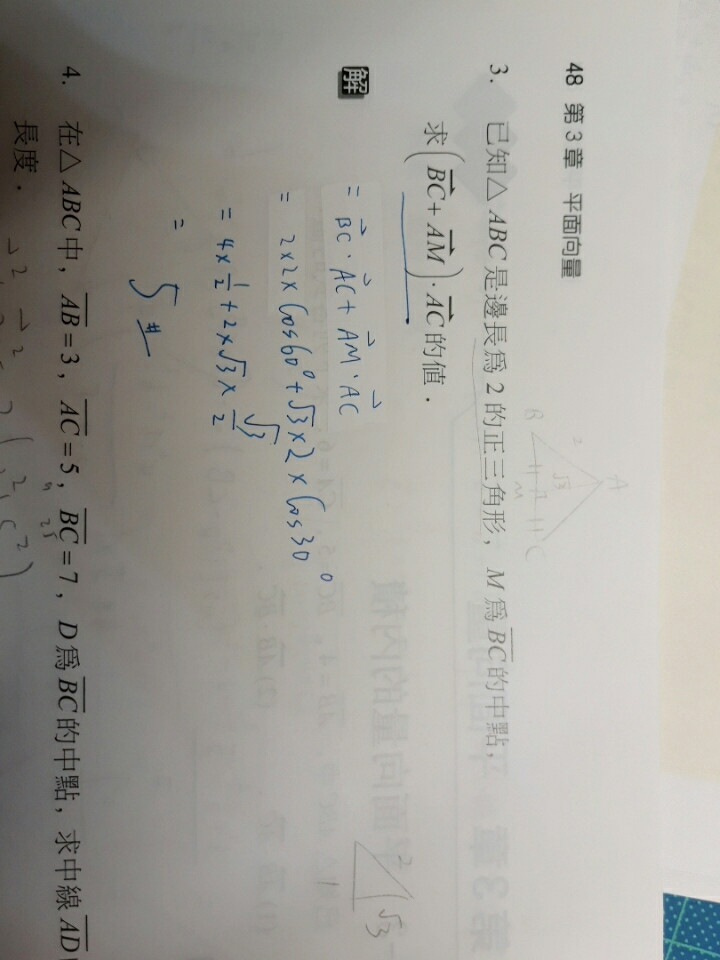 48 第3章 平面向量
3. 已知△ABC是邊長為2的正三角形，M為BC的中點，
求(BC+AM)·AC的值．
A
2
√3
B
M
C
解
= BC·AC+AM·AC
= 2×2×Cos60°+√3×2×Cos30°
= 4×1/2+2×√3×√3/2
= 5 #
2
√3
4. 在△ABC中，AB=3，AC=5，BC=7，D為BC的中點，求中線AD
長度．